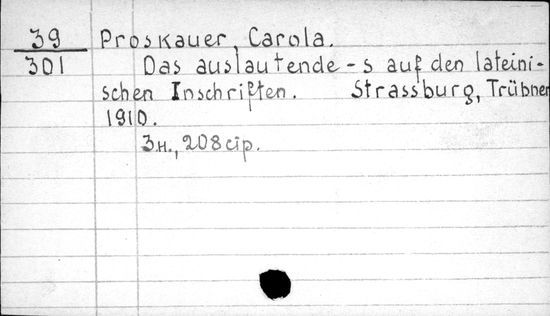 39 Proskauer, Carola.
301 Das auslautende -s auf den lateini-
schen Inschriften. Strassburg, Trübner
1910.
3н., 208 стр.